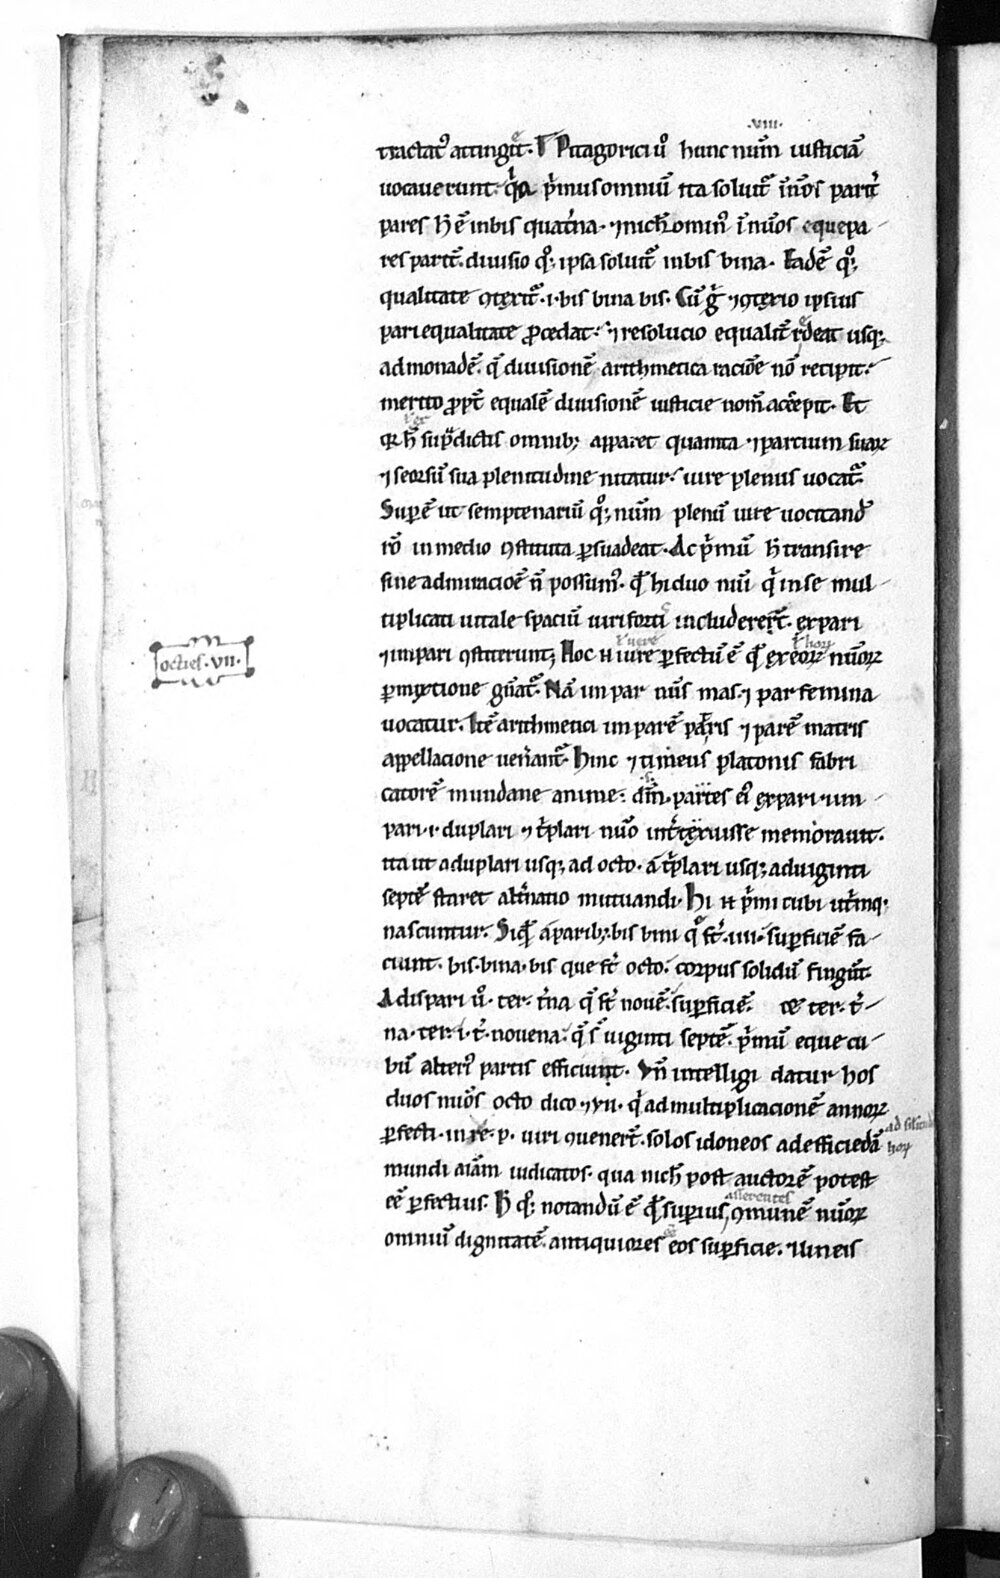 .viii.
tractatꝰ attingit̅. Pitagorici ů hunc num̅ iusticiā
uocauerunt. q̇a ṗmus omniū ita soluit᷑ i̅ nūos parit̅
pares h̄ ē in bis quat̓na. ⁊ nich̄omin᷒ i̅ nūos eque pa
res partē. diuisio q̊ꝫ ipsa soluit᷑ in bis bina. Eadē q̊ꝫ
qualitate ꝯtexit᷑ .i. bis bina bis. Cū g̓ ⁊ ꝯtexio ipsius
pari equalitate ꝓcedat. ⁊ resolucio equalit̅ rdeat usqꝫ
ad monadē. q̄ diuisionē arithmetica racioē nō recipit.
merito ꝓpt̅ equalē diuisionē iusticie nom̅ accepit. Et
qr h̄ sup̄dictis omnibꝫ apparet quanta ⁊ parcium suaꝝ
⁊ seorsū sua plenitudine nitatur. iure plenus uocat᷑.
Sup̱ ē ut septenariū q̊ꝫ num̅ plenū iure uocitand̅
rō in medio ꝯstituta ꝑsuadeat. Ac p̓mū h̄ transire
sine admiracioē n̄ possum᷒. qd̄ hi duo nūi q̓ in se mul
tiplicati uitale spaciū uiri forti includerent̅. ex pari
⁊ impari ꝯstiterunt; Hoc n̄ iure ꝑfectū ē qd̄ ex eoꝝ nūoꝝ
octies .vii.
l̄ uere
l̄ hoꝝ
ꝑmixtione gn̄at᷑. Nā inpar nūs mas. ⁊ par femina
uocatur. Itē arithmetici imparē patris ⁊ parē matris
appellacione uenerant᷑. Hinc ⁊ timeus platonis fabri
catorē mundane anime. dm̄. partes ei᷒ ex pari ⁊ im
pari .i. duplari ⁊ t̓plari nūo int̓texuisse memorauit.
ita ut a duplari usqꝫ ad octo. a t̓plari usqꝫ ad uiginti
septē staret alt̓natio mutuandi. Hi n̄ p̓mi cubi ut̓imqꝫ
nascuntur. Siqd̄ a paribꝫ bis bini q̊ st̄ .iiii. sup̱ficiē fa
ciunt. bis. bina. bis que st̄ octo. corpus solidū fingūt.
A dispari ů. ter. t̓na q̄ st̄ nouē. sup̱ficiē. ter. t̓
na. ter. .i. t̓. nouena. q̄ s̄ uiginti septē. p̓mū eque cu
bū alteri᷒ partis efficiunt. Vn̄ intelligi datur hos
duos nūos octo dico ⁊ vii. q̓ ad multiplicacionē annoꝝ
ꝑfecti. in re. p. uiri ꝯuenerūt. solos idoneos ad efficiēdā
mundi aīam iudicatos. qua nich̄ post auctorē potest
eē ꝑfectius. H̄ qꝫ notandū ē qd̄ superius, ꝯmunē nūoꝝ
asserentes
omniū dignitatē. antiquiores eos sup̱ficie. ⁊ lineis